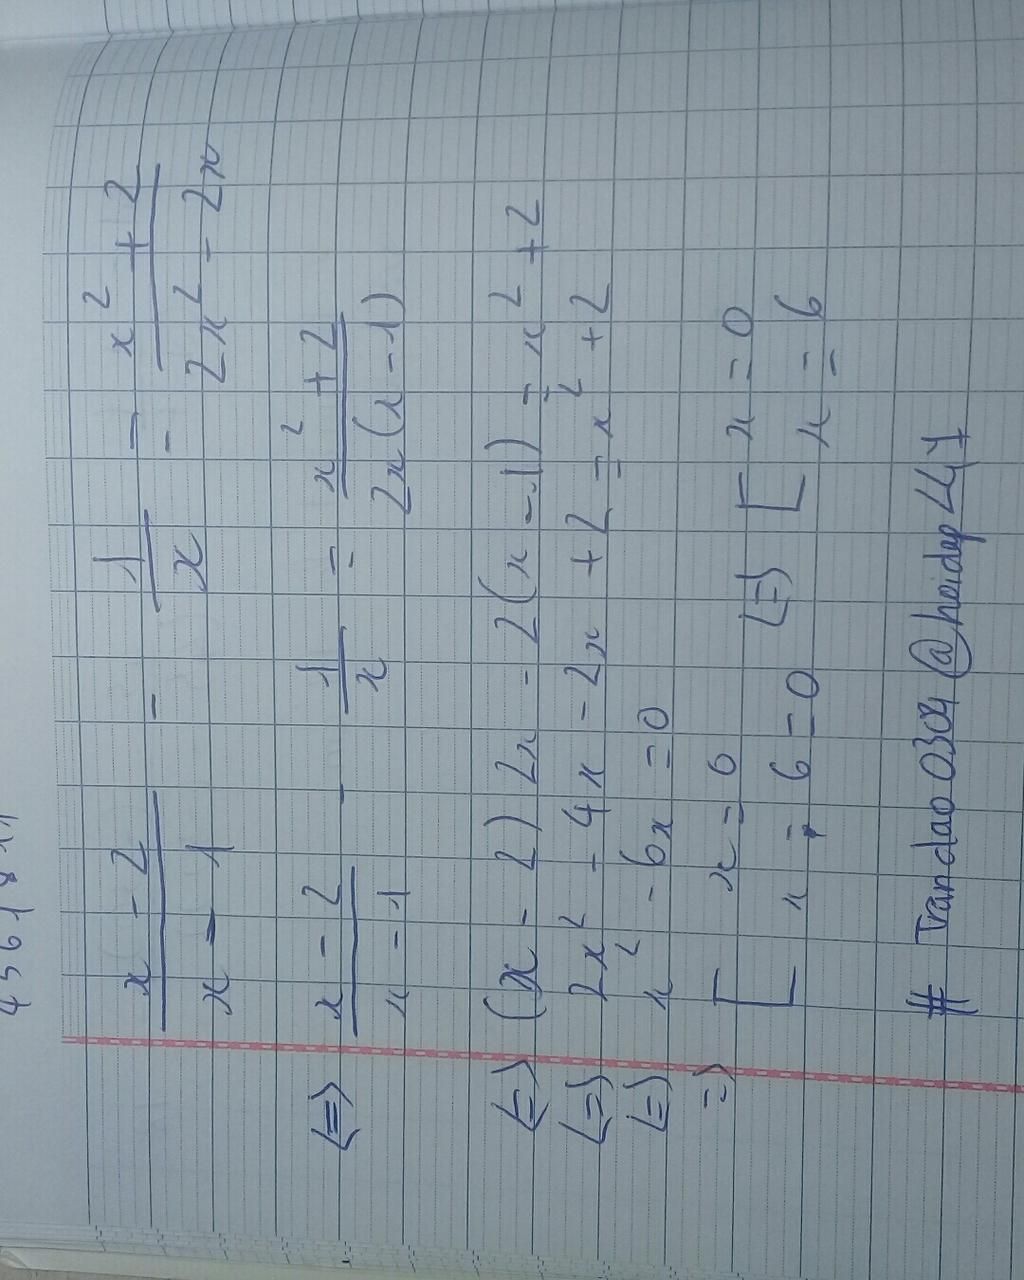 x - 2 / x - 1 - 1 / x = x² + 2 / 2x² - 2x
<=> x - 2 / x - 1 - 1 / x = x² + 2 / 2x(x - 1)
<=> (x - 2) 2x - 2(x - 1) = x² + 2
<=> 2x² - 4x - 2x + 2 = x² + 2
<=> x² - 6x = 0
=> [ x = 0 <=> [ x = 0
[ x - 6 = 0 [ x = 6
# Trandao0304 @hoidap247